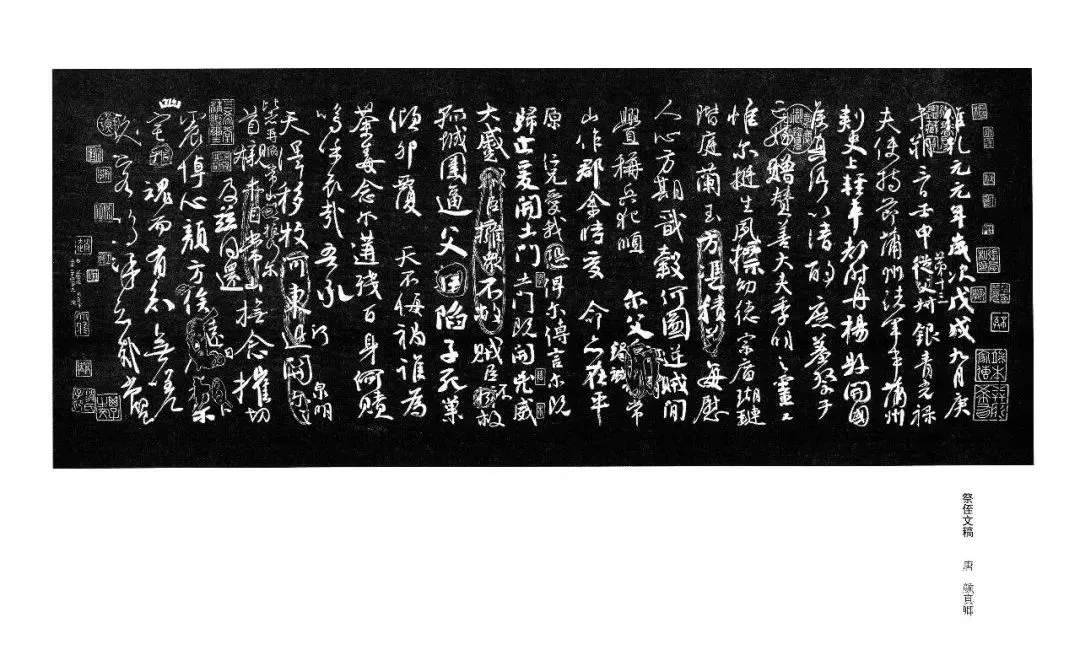 維乾元元年歲次戊戌九月庚
午朔三日壬申第十三從父銀青光祿
夫使持節蒲州諸軍事蒲州
刺史上輕車都尉丹楊縣開國
侯真卿以清酌庶羞祭于
亡姪贈贊善大夫季明之靈曰
惟爾挺生夙標幼德宗廟瑚璉
階庭蘭玉方憑積善每慰
人心方期戩穀何圖逆賊閒
釁稱兵犯順爾父竭誠常
山作郡余時受命亦在平
原仁兄愛我俾爾傳言爾既
歸止爰開土門土門既開兇威
大蹙賊臣擁衆不救賊臣不救
孤城圍逼父陷子死巢
傾卵覆天不悔禍誰為
荼毒念爾遘殘百身何贖
嗚呼哀哉吾承
天澤移牧河東近泉明
比者再陷常山攜爾
首櫬及茲同還撫念摧切
震悼心顏方俟遠日
卜爾幽宅魂而有知無嗟
久客嗚呼哀哉尚饗
祭侄文稿 唐 顏真卿